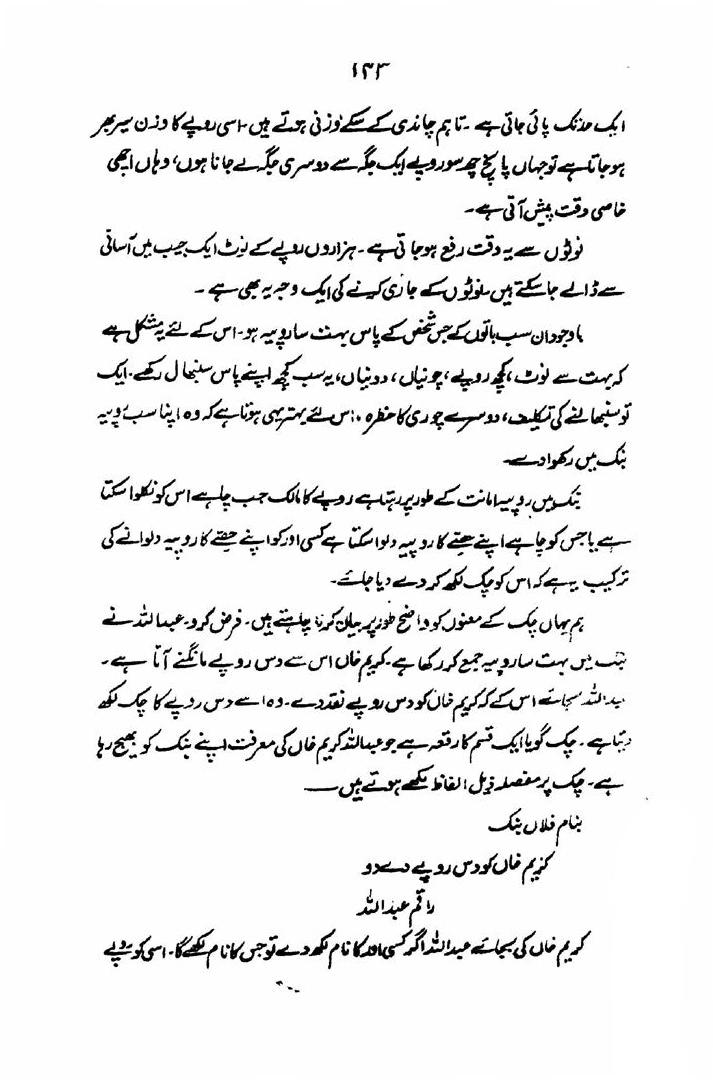 ۱۴۳
ایک حد تک پائی جاتی ہے۔ تاہم چاندی کے سکے وزنی ہوتے ہیں۔ اسی روپے کا وزن سیر بھر
ہو جاتا ہے تو جہاں پانچ چھ سو روپے ایک جگہ سے دوسری جگہ لے جانا ہوں، وہاں اچھی
خاصی دقت پیش آتی ہے۔
نوٹوں سے یہ دقت رفع ہو جاتی ہے۔ ہزاروں روپے کے نوٹ ایک جیب میں آسانی
سے ڈالے جا سکتے ہیں۔ نوٹوں کے جاری کرنے کی ایک وجہ یہ بھی ہے۔
باوجود ان سب باتوں کے جس شخص کے پاس بہت سا روپیہ ہو۔ اس کے لئے یہ مشکل ہے
کہ بہت سے نوٹ، کچھ روپے، چونیاں، دونیاں، یہ سب کچھ اپنے پاس سنبھال رکھے۔ ایک
تو سنبھالنے کی تکلیف، دوسرے چوری کا خطرہ۔ اس لئے بہتر یہی ہوتا ہے کہ وہ اپنا سب روپیہ
بنک میں رکھوا دے۔
بنک میں روپیہ امانت کے طور پر رہتا ہے روپے کا مالک جب چاہے اس کو نکلوا سکتا
ہے یا جس کو چاہے اپنے حصے کا روپیہ دلوا سکتا ہے کسی اور کو اپنے حصے کا روپیہ دلوانے کی
ترکیب یہ ہے کہ اس کو چک لکھ کر دے دیا جائے۔
ہم یہاں چک کے معنوں کو واضح طور پر بیان کرنا چاہتے ہیں۔ فرض کرو۔ عبداللہ نے
بنک میں بہت سا روپیہ جمع کر رکھا ہے۔ کریم خاں اس سے دس روپے مانگنے آتا ہے۔
عبداللہ بجائے اس کے کہ کریم خاں کو دس روپے نقد دے۔ وہ اسے دس روپے کا چک لکھ
دیتا ہے۔ چک گویا ایک قسم کا رقعہ ہے جو عبداللہ کریم خاں کی معرفت اپنے بنک کو بھیج رہا
ہے۔ چک پر مفصلہ ذیل الفاظ لکھے ہوتے ہیں۔
بنام فلاں بنک
کریم خاں کو دس روپے دے دو
راقم عبداللہ
کریم خاں کی بجائے عبداللہ اگر کسی اور کا نام لکھ دے تو جس کا نام لکھے گا۔ اسی کو روپے